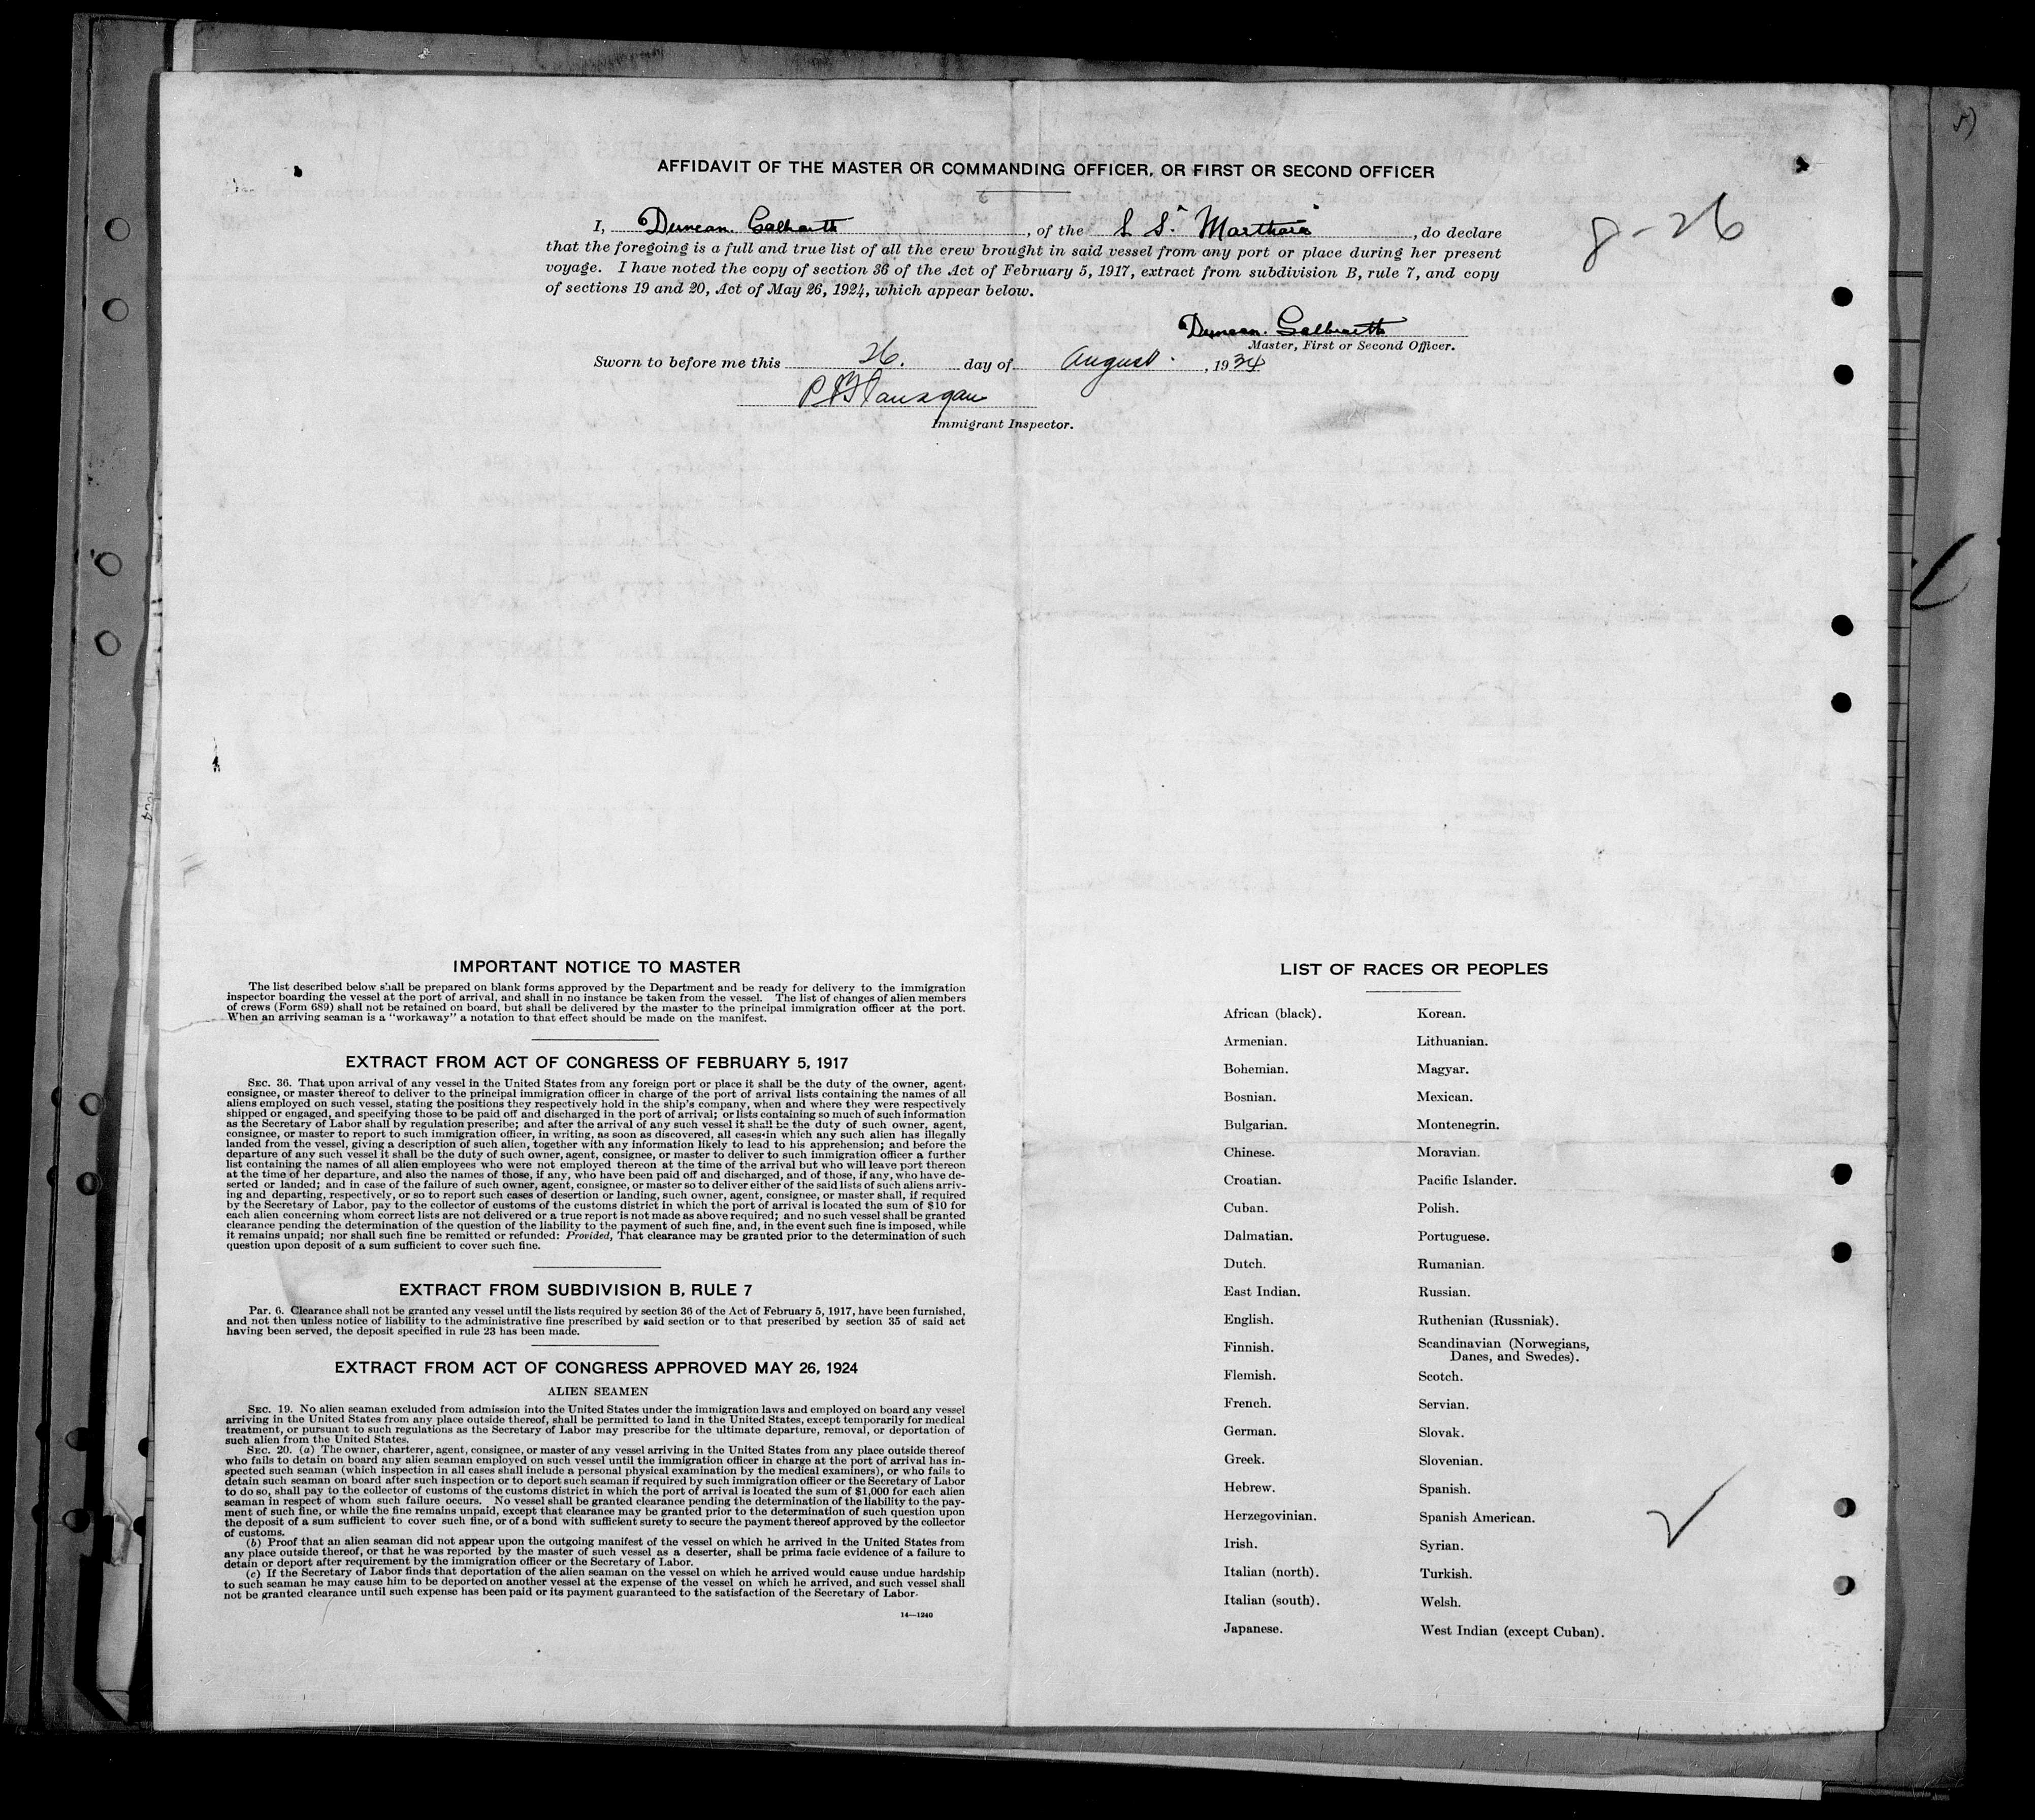 AFFIDAVIT OF THE MASTER OR COMMANDING OFFICER, OR FIRST OR SECOND OFFICER
8-26
I, Duncan. Galbraith, of the S S. "Marthara", do declare
that the foregoing is a full and true list of all the crew brought in said vessel from any port or place during her present
voyage. I have noted the copy of section 36 of the Act of February 5, 1917, extract from subdivision B, rule 7, and copy
of sections 19 and 20, Act of May 26, 1924, which appear below.
Duncan. Galbraith
Master, First or Second Officer.
Sworn to before me this 26. day of August, 1934
Flanagan
Immigrant Inspector.
IMPORTANT NOTICE TO MASTER
The list described below shall be prepared on blank forms approved by the Department and be ready for delivery to the immigration
inspector boarding the vessel at the port of arrival, and shall in no instance be taken from the vessel. The list of changes of alien members
of crews (Form 689) shall not be retained on board, but shall be delivered by the master to the principal immigration officer at the port.
When an arriving seaman is a "workaway" a notation to that effect should be made on the manifest.
EXTRACT FROM ACT OF CONGRESS OF FEBRUARY 5, 1917
SEC. 36. That upon arrival of any vessel in the United States from any foreign port or place it shall be the duty of the owner, agent,
consignee, or master thereof to deliver to the principal immigration officer in charge of the port of arrival lists containing the names of all
aliens employed on such vessel, stating the positions they respectively hold in the ship's company, when and where they were respectively
shipped or engaged, and specifying those to be paid off and discharged in the port of arrival; or lists containing so much of such information
as the Secretary of Labor shall by regulation prescribe; and after the arrival of any such vessel it shall be the duty of such owner, agent,
consignee, or master to report to such immigration officer, in writing, as soon as discovered, all cases in which any such alien has illegally
landed from the vessel, giving a description of such alien, together with any information likely to lead to his apprehension; and before the
departure of any such vessel it shall be the duty of such owner, agent, consignee, or master to deliver to such immigration officer a further
list containing the names of all alien employees who were not employed thereon at the time of the arrival but who will leave port thereon
at the time of her departure, and also the names of those, if any, who have been paid off and discharged, and of those, if any, who have de-
serted or landed; and in case of the failure of such owner, agent, consignee, or master so to deliver either of the said lists of such aliens arriv-
ing and departing, respectively, or so to report such cases of desertion or landing, such owner, agent, consignee, or master shall, if required
by the Secretary of Labor, pay to the collector of customs of the customs district in which the port of arrival is located the sum of $10 for
each alien concerning whom correct lists are not delivered or a true report is not made as above required; and no such vessel shall be granted
clearance pending the determination of the question of the liability to the payment of such fine, and, in the event such fine is imposed, while
it remains unpaid; nor shall such fine be remitted or refunded: Provided, That clearance may be granted prior to the determination of such
question upon deposit of a sum sufficient to cover such fine.
EXTRACT FROM SUBDIVISION B, RULE 7
Par. 6. Clearance shall not be granted any vessel until the lists required by section 36 of the Act of February 5, 1917, have been furnished,
and not then unless notice of liability to the administrative fine prescribed by said section or to that prescribed by section 35 of said act
having been served, the deposit specified in rule 23 has been made.
EXTRACT FROM ACT OF CONGRESS APPROVED MAY 26, 1924
ALIEN SEAMEN
SEC. 19. No alien seaman excluded from admission into the United States under the immigration laws and employed on board any vessel
arriving in the United States from any place outside thereof, shall be permitted to land in the United States, except temporarily for medical
treatment, or pursuant to such regulations as the Secretary of Labor may prescribe for the ultimate departure, removal, or deportation of
such alien from the United States.
SEC. 20. (a) The owner, charterer, agent, consignee, or master of any vessel arriving in the United States from any place outside thereof
who fails to detain on board any alien seaman employed on such vessel until the immigration officer in charge at the port of arrival has in-
spected such seaman (which inspection in all cases shall include a personal physical examination by the medical examiners), or who fails to
detain such seaman on board after such inspection or to deport such seaman if required by such immigration officer or the Secretary of Labor
to do so, shall pay to the collector of customs of the customs district in which the port of arrival is located the sum of $1,000 for each alien
seaman in respect of whom such failure occurs. No vessel shall be granted clearance pending the determination of the liability to the pay-
ment of such fine, or while the fine remains unpaid, except that clearance may be granted prior to the determination of such question upon
the deposit of a sum sufficient to cover such fine, or of a bond with sufficient surety to secure the payment thereof approved by the collector
of customs.
(b) Proof that an alien seaman did not appear upon the outgoing manifest of the vessel on which he arrived in the United States from
any place outside thereof, or that he was reported by the master of such vessel as a deserter, shall be prima facie evidence of a failure to
detain or deport after requirement by the immigration officer or the Secretary of Labor.
(c) If the Secretary of Labor finds that deportation of the alien seaman on the vessel on which he arrived would cause undue hardship
to such seaman he may cause him to be deported on another vessel at the expense of the vessel on which he arrived, and such vessel shall
not be granted clearance until such expense has been paid or its payment guaranteed to the satisfaction of the Secretary of Labor.
14—1240
LIST OF RACES OR PEOPLES
African (black).
Armenian.
Bohemian.
Bosnian.
Bulgarian.
Chinese.
Croatian.
Cuban.
Dalmatian.
Dutch.
East Indian.
English.
Finnish.
Flemish.
French.
German.
Greek.
Hebrew.
Herzegovinian.
Irish.
Italian (north).
Italian (south).
Japanese.
Korean.
Lithuanian.
Magyar.
Mexican.
Montenegrin.
Moravian.
Pacific Islander.
Polish.
Portuguese.
Rumanian.
Russian.
Ruthenian (Russniak).
Scandinavian (Norwegians,
Danes, and Swedes).
Scotch.
Servian.
Slovak.
Slovenian.
Spanish.
Spanish American.
Syrian.
Turkish.
Welsh.
West Indian (except Cuban).